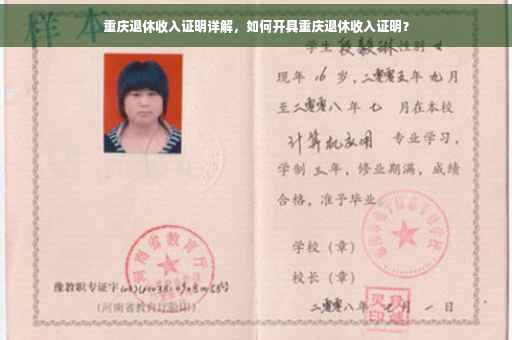 重庆退休收入证明详解，如何开具重庆退休收入证明？
样本
学生 段毅琳 性别 女
现年 16 岁，二零零五年 九月
至二零零八 年 七 月在本校
计算机应用 专业学习，
学制 三 年，修业期满，成绩
合格，准予毕业
学校（章）
校长（章）
河南省教育厅
豫教职专证字
（河南省教育厅验印）
二零零八年 七 月 一 日